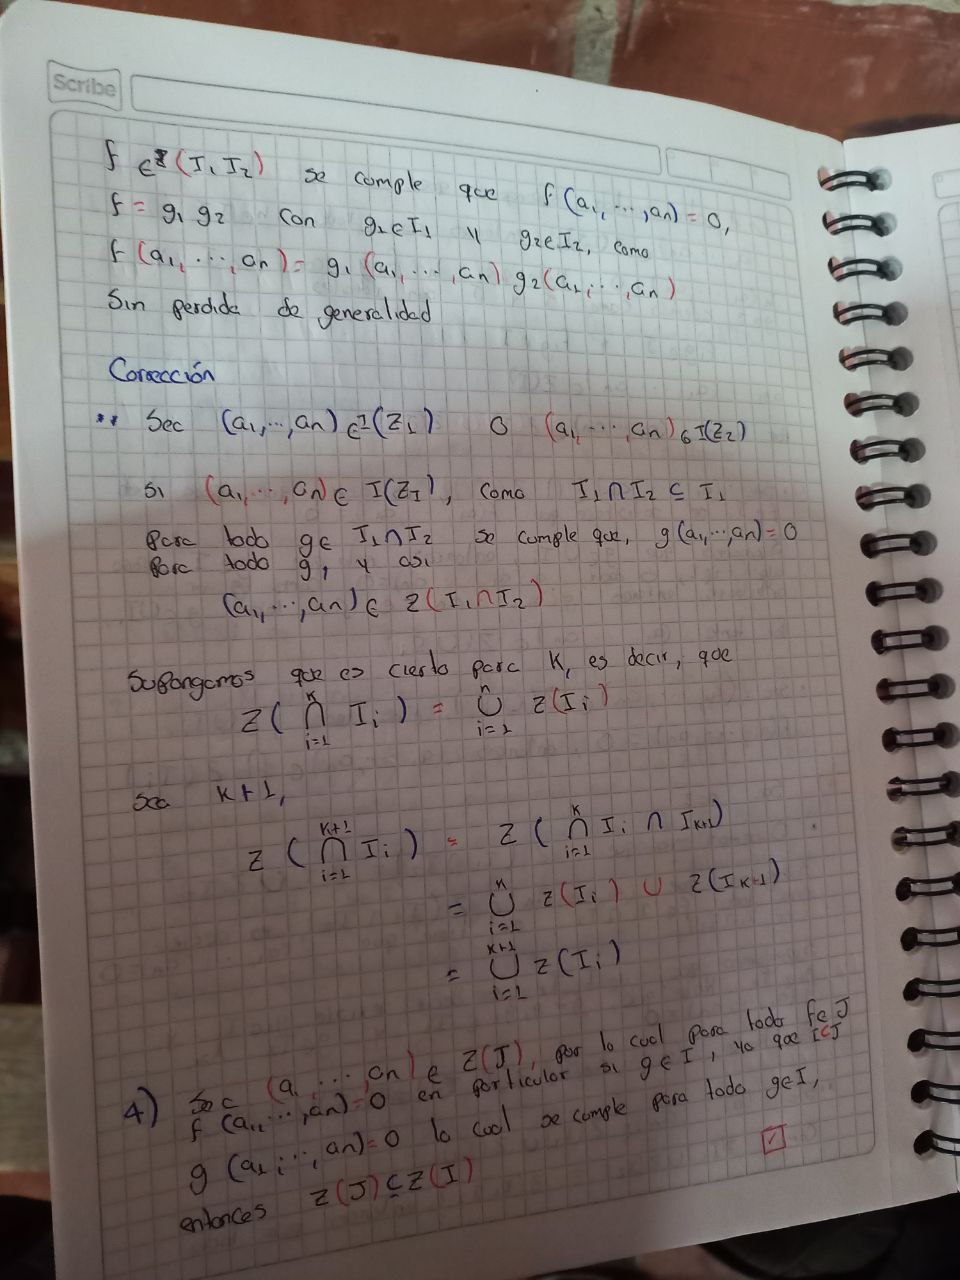 Scribe
f ∈ Z (I₁ I₂) se cumple que f(a₁, ..., an) = 0,
f = g₁ g₂ con g₁∈I₁ y g₂∈I₂, como
f (a₁, ..., an) = g₁ (a₁, ..., an) g₂(a₁, ..., an)
Sin perdida de generalidad
Corrección
Sea (a₁, ..., an) ∈ I(Z₁) o (a₁, ..., an) ∈ I(Z₂)
si (a₁, ..., an) ∈ I(Z₁), como I₁ ∩ I₂ ⊆ I₁
para todo g∈ I₁∩I₂ se cumple que, g(a₁, ..., an) = 0
para todo g, y así
(a₁, ..., an) ∈ Z(I₁∩I₂)
Supongamos que es cierto para K, es decir, que
Z( ⋂_{i=1}^{K} Iᵢ ) = ⋃_{i=1}^{n} Z(Iᵢ)
sea K+1,
Z ( ⋂_{i=1}^{K+1} Iᵢ ) = Z ( ⋂_{i=1}^{K} Iᵢ ∩ I_{K+1})
= ⋃_{i=1}^{K} Z(Iᵢ) ∪ Z(I_{K+1})
= ⋃_{i=1}^{K+1} Z(Iᵢ)
4) Sea (a₁, ..., an) ∈ Z(J), por lo cual para todo f∈J
f (a₁, ..., an) = 0 en particular si g∈I, ya que I⊂J
g (a₁, ..., an) = 0 lo cual se cumple para todo g∈I,
entonces Z(J) ⊆ Z(I)